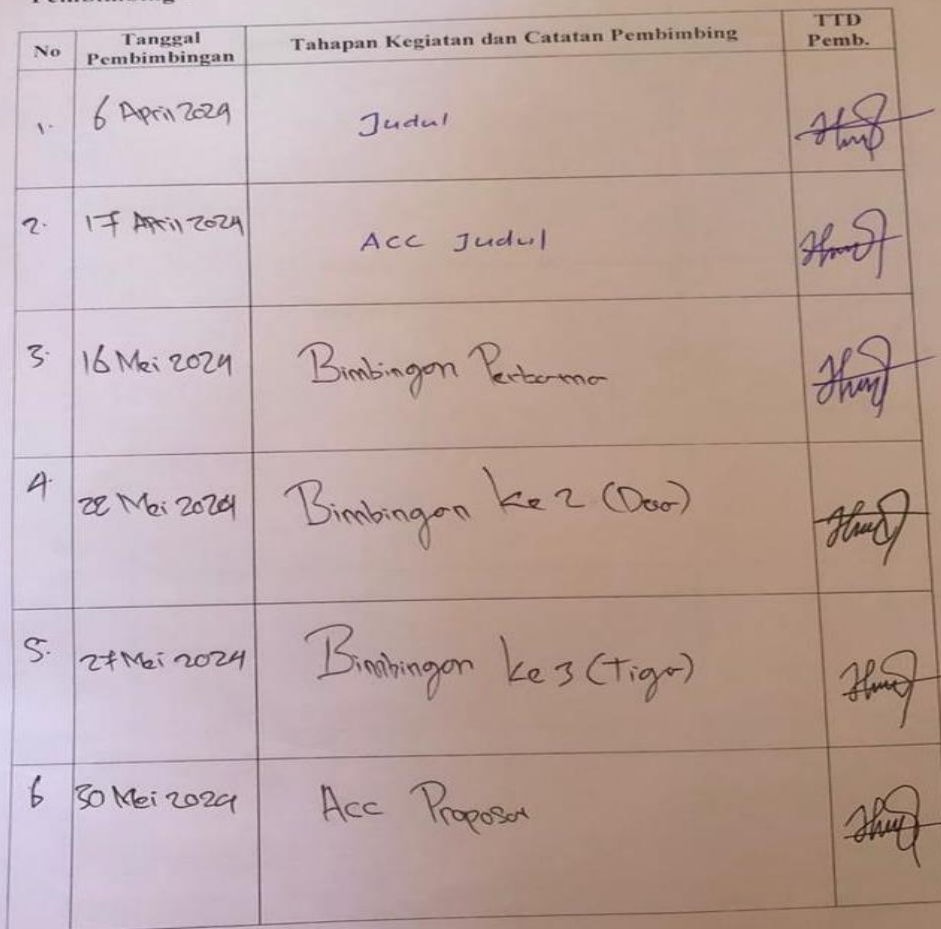 No
Tanggal
Pembimbingan
Tahapan Kegiatan dan Catatan Pembimbing
TTD
Pemb.
1. 6 April 2024 Judul
2. 17 April 2024 ACC Judul
3. 16 Mei 2024 Bimbingan Pertama
4. 22 Mei 2024 Bimbingan ke 2 (Dua)
5. 27 Mei 2024 Bimbingan ke 3 (Tiga)
6 30 Mei 2024 Acc Proposal